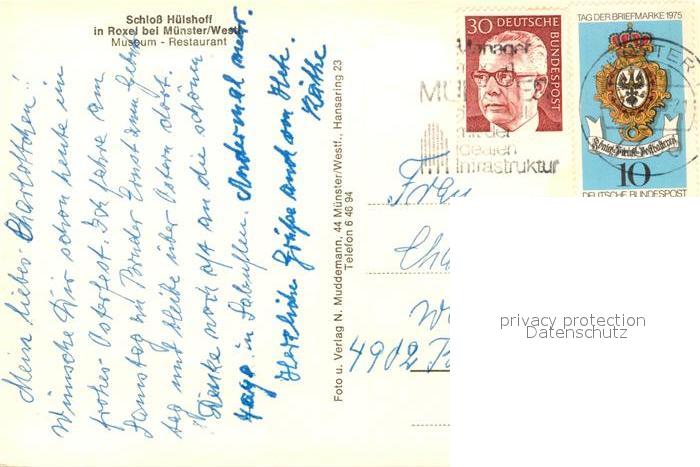 Schloß Hülshoff
in Roxel bei Münster/Westf.
Museum - Restaurant
Mein liebes Charlottchen!
Wünsche Dir schon heute ein
frohes Osterfest. Ich fahre am
Samstag zu Bruder Ernst am
tag und bleibe über Ostern dort.
Denke noch oft an die schönen
Tage in Salzuflen. Andermal mehr.
Herzliche Grüße und
Käthe
Foto u. Verlag N. Muddemann, 44 Münster/Westf., Hansaring 23
Telefon 6 46 94
30 DEUTSCHE BUNDESPOST
TAG DER BRIEFMARKE 1975
10
DEUTSCHE BUNDESPOST
Manager
mit der
idealen
Infrastruktur
Frau
4902
privacy protection
Datenschutz